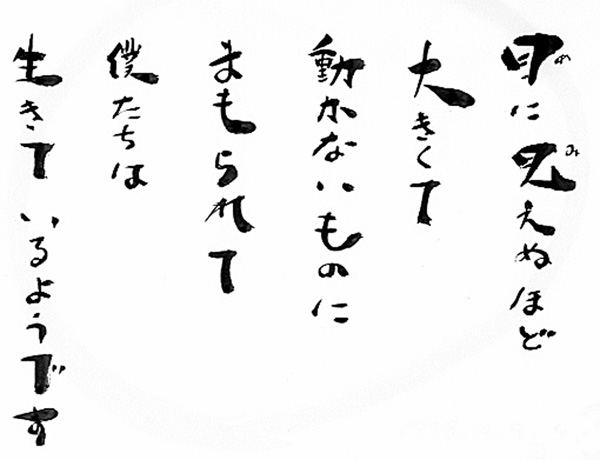 目に見えぬほど
大きくて
動かないものに
まもられて
僕たちは
生きて いるようです